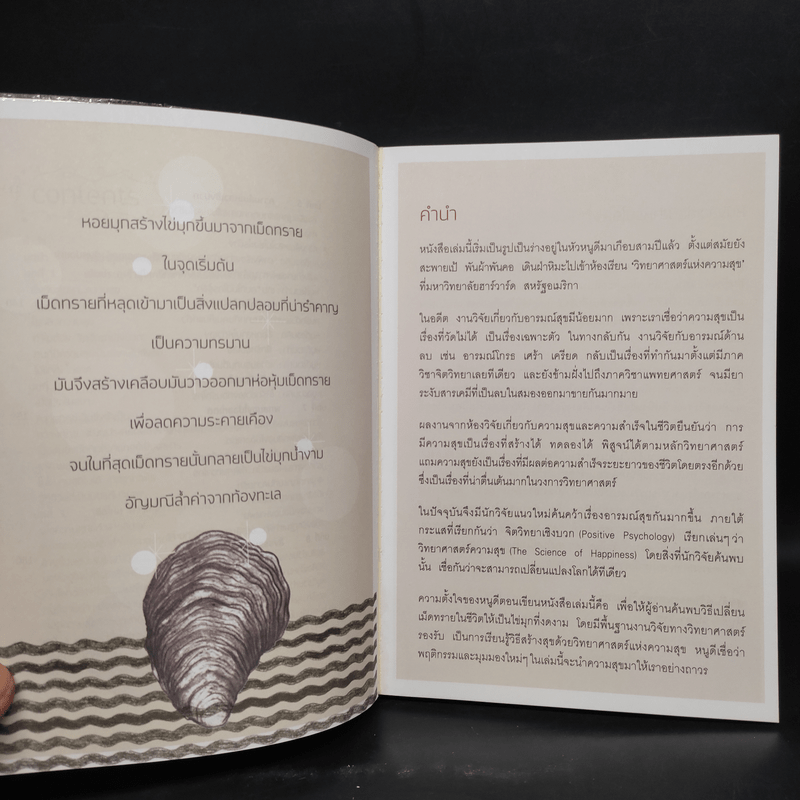 หอยมุกสร้างไข่มุกขึ้นมาจากเม็ดทราย
ในจุดเริ่มต้น
เม็ดทรายที่หลุดเข้ามาเป็นสิ่งแปลกปลอมที่น่ารำคาญ
เป็นความทรมาน
มันจึงสร้างเคลือบมันวาวออกมาห่อหุ้มเม็ดทราย
เพื่อลดความระคายเคือง
จนในที่สุดเม็ดทรายนั้นกลายเป็นไข่มุกน้ำงาม
อัญมณีล้ำค่าจากท้องทะเล
คำนำ
หนังสือเล่มนี้เริ่มเป็นรูปเป็นร่างอยู่ในหัวหนูดีมาเกือบสามปีแล้ว ตั้งแต่สมัยยัง
สะพายเป้ พันผ้าพันคอ เดินฝ่าหิมะไปเข้าห้องเรียน ‘วิทยาศาสตร์แห่งความสุข’
ที่มหาวิทยาลัยฮาร์วาร์ด สหรัฐอเมริกา
ในอดีต งานวิจัยเกี่ยวกับอารมณ์สุขมีน้อยมาก เพราะเราเชื่อว่าความสุขเป็น
เรื่องที่วัดไม่ได้ เป็นเรื่องเฉพาะตัว ในทางกลับกัน งานวิจัยกับอารมณ์ด้าน
ลบ เช่น อารมณ์โกรธ เศร้า เครียด กลับเป็นเรื่องที่ทำกันมาตั้งแต่มีภาค
วิชาจิตวิทยาเลยทีเดียว และยังข้ามฝั่งไปถึงภาควิชาแพทยศาสตร์ จนมียา
ระงับสารเคมีที่เป็นลบในสมองออกมาขายกันมากมาย
ผลงานจากห้องวิจัยเกี่ยวกับความสุขและความสำเร็จในชีวิตยืนยันว่า การ
มีความสุขเป็นเรื่องที่สร้างได้ ทดลองได้ พิสูจน์ได้ตามหลักวิทยาศาสตร์
แถมความสุขยังเป็นเรื่องที่มีผลต่อความสำเร็จระยะยาวของชีวิตโดยตรงอีกด้วย
ซึ่งเป็นเรื่องที่น่าตื่นเต้นมากในวงการวิทยาศาสตร์
ในปัจจุบันจึงมีนักวิจัยแนวใหม่ค้นคว้าเรื่องอารมณ์สุขกันมากขึ้น ภายใต้
กระแสที่เรียกกันว่า จิตวิทยาเชิงบวก (Positive Psychology) เรียกเล่นๆ ว่า
วิทยาศาสตร์ความสุข (The Science of Happiness) โดยสิ่งที่นักวิจัยค้นพบ
นั้น เชื่อกันว่าจะสามารถเปลี่ยนแปลงโลกได้ทีเดียว
ความตั้งใจของหนูดีตอนเขียนหนังสือเล่มนี้คือ เพื่อให้ผู้อ่านค้นพบวิธีเปลี่ยน
เม็ดทรายในชีวิตให้เป็นไข่มุกที่งดงาม โดยมีพื้นฐานงานวิจัยทางวิทยาศาสตร์
รองรับ เป็นการเรียนรู้วิธีสร้างสุขด้วยวิทยาศาสตร์แห่งความสุข หนูดีเชื่อว่า
พฤติกรรมและมุมมองใหม่ๆ ในเล่มนี้จะนำความสุขมาให้เราอย่างถาวร